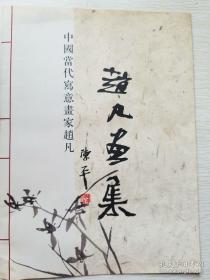 中國當代寫意畫家趙凡
趙凡画集
陳平